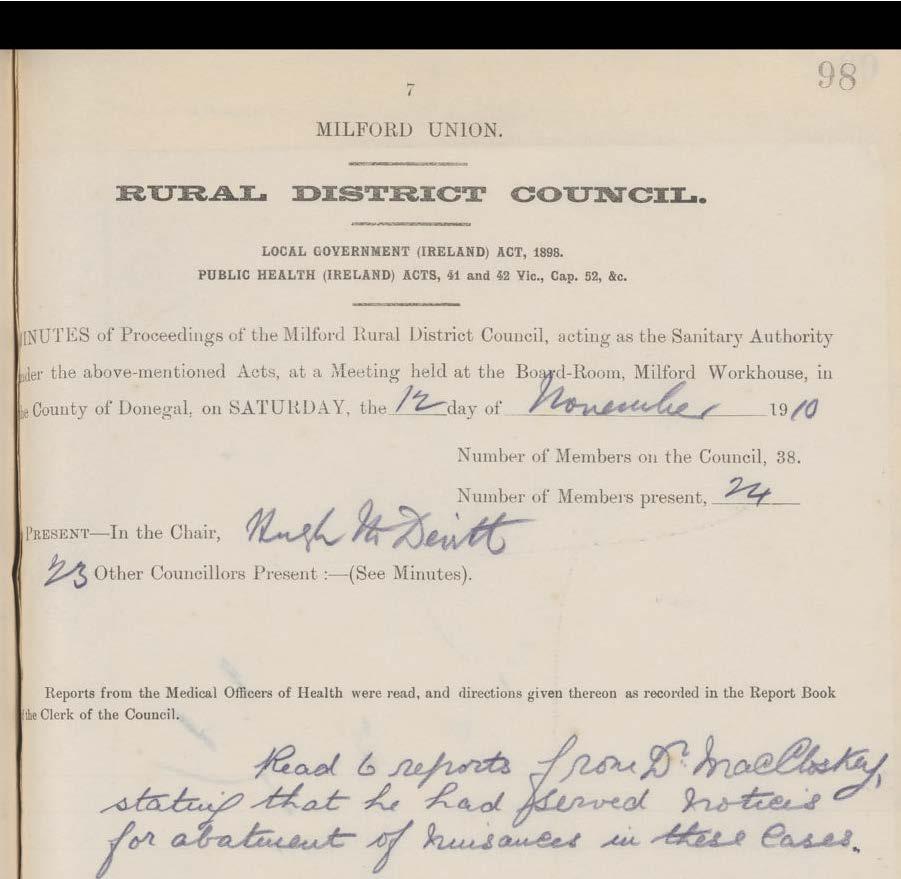 98
7
MILFORD UNION.
RURAL DISTRICT COUNCIL.
LOCAL GOVERNMENT (IRELAND) ACT, 1898.
PUBLIC HEALTH (IRELAND) ACTS, 41 and 42 Vic., Cap. 52, &c.
INUTES of Proceedings of the Milford Rural District Council, acting as the Sanitary Authority
der the above-mentioned Acts, at a Meeting held at the Board-Room, Milford Workhouse, in
e County of Donegal, on SATURDAY, the 12 day of November 1910
Number of Members on the Council, 38.
Number of Members present, 24
PRESENT—In the Chair, Hugh McDevitt
23 Other Councillors Present :—(See Minutes).
Reports from the Medical Officers of Health were read, and directions given thereon as recorded in the Report Book
the Clerk of the Council.
Read 6 reports from Dr. MacCloskey,
stating that he had served notices
for abatement of nuisances in these cases.